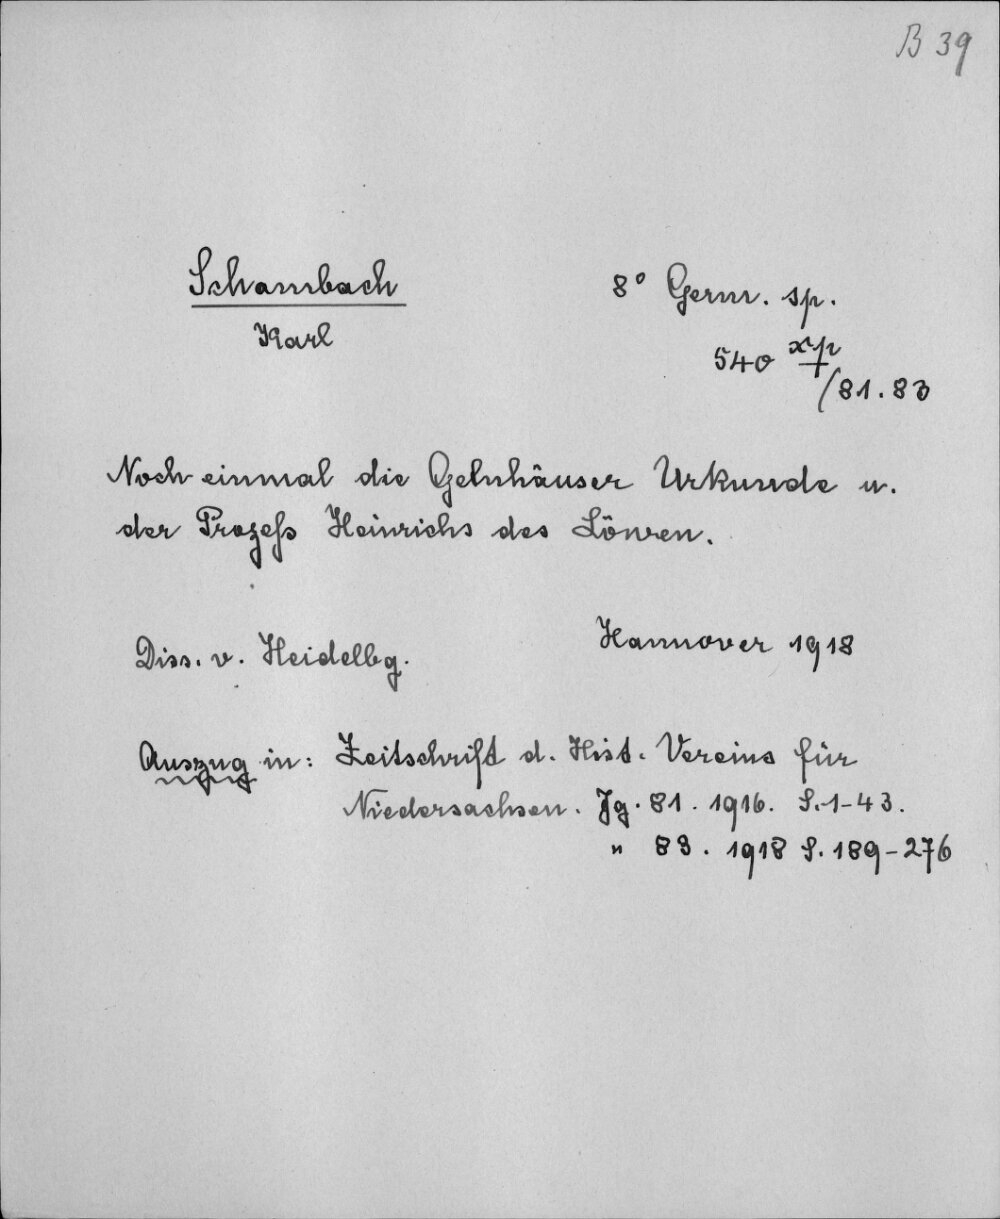 B 39
Schambach
Karl
8° Germ. sp.
540 xp
/81.83
Noch einmal die Gelnhäuser Urkunde u.
der Prozeß Heinrichs des Löwen.
Diss. v. Heidelbg.
Hannover 1918
Auszug in: Zeitschrift d. Hist. Vereins für
Niedersachsen. Jg. 81. 1916. S. 1-43.
" 83. 1918 S. 189-276